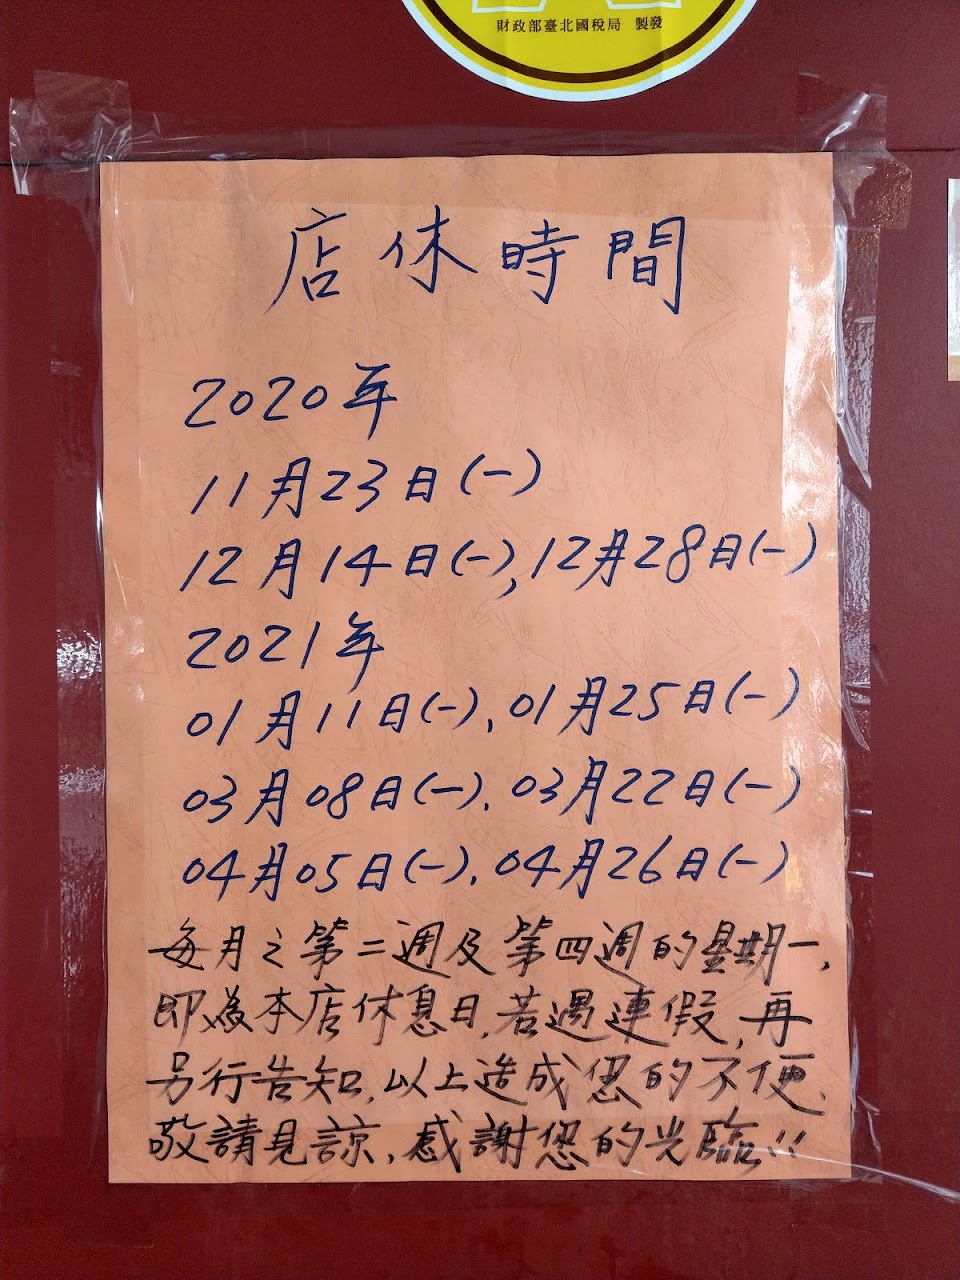 財政部臺北國稅局 製發
店休時間
2020年
11月23日(一)
12月14日(一),12月28日(一)
2021年
01月11日(一)、01月25日(一)
03月08日(一)、03月22日(一)
04月05日(一)、04月26日(一)
每月之第二週及第四週的星期一,
即為本店休息日,若遇連假,再
另行告知,以上造成您的不便,
敬請見諒,感謝您的光臨!!